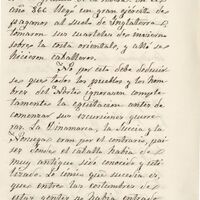 año 866 llegó un gran ejército de
paganos al suelo de Inglaterra,
tomaron sus cuarteles de invierno
sobre la costa oriental, y allí se
hicieron caballeros.
Solo por esto debe deducir-
se que todos los pueblos y los hom-
bres del Norte ignoraron comple-
tamente la equitación antes de
comenzar sus excursiones guerre-
ras. La Dinamarca, la Suecia y la
Noruega eran por el contrario, paí-
ses donde el caballo había de
muy antiguo sido conocido y uti-
lizado. Lo único que sucedía es,
que entre las costumbres de
estas gentes no había entrado